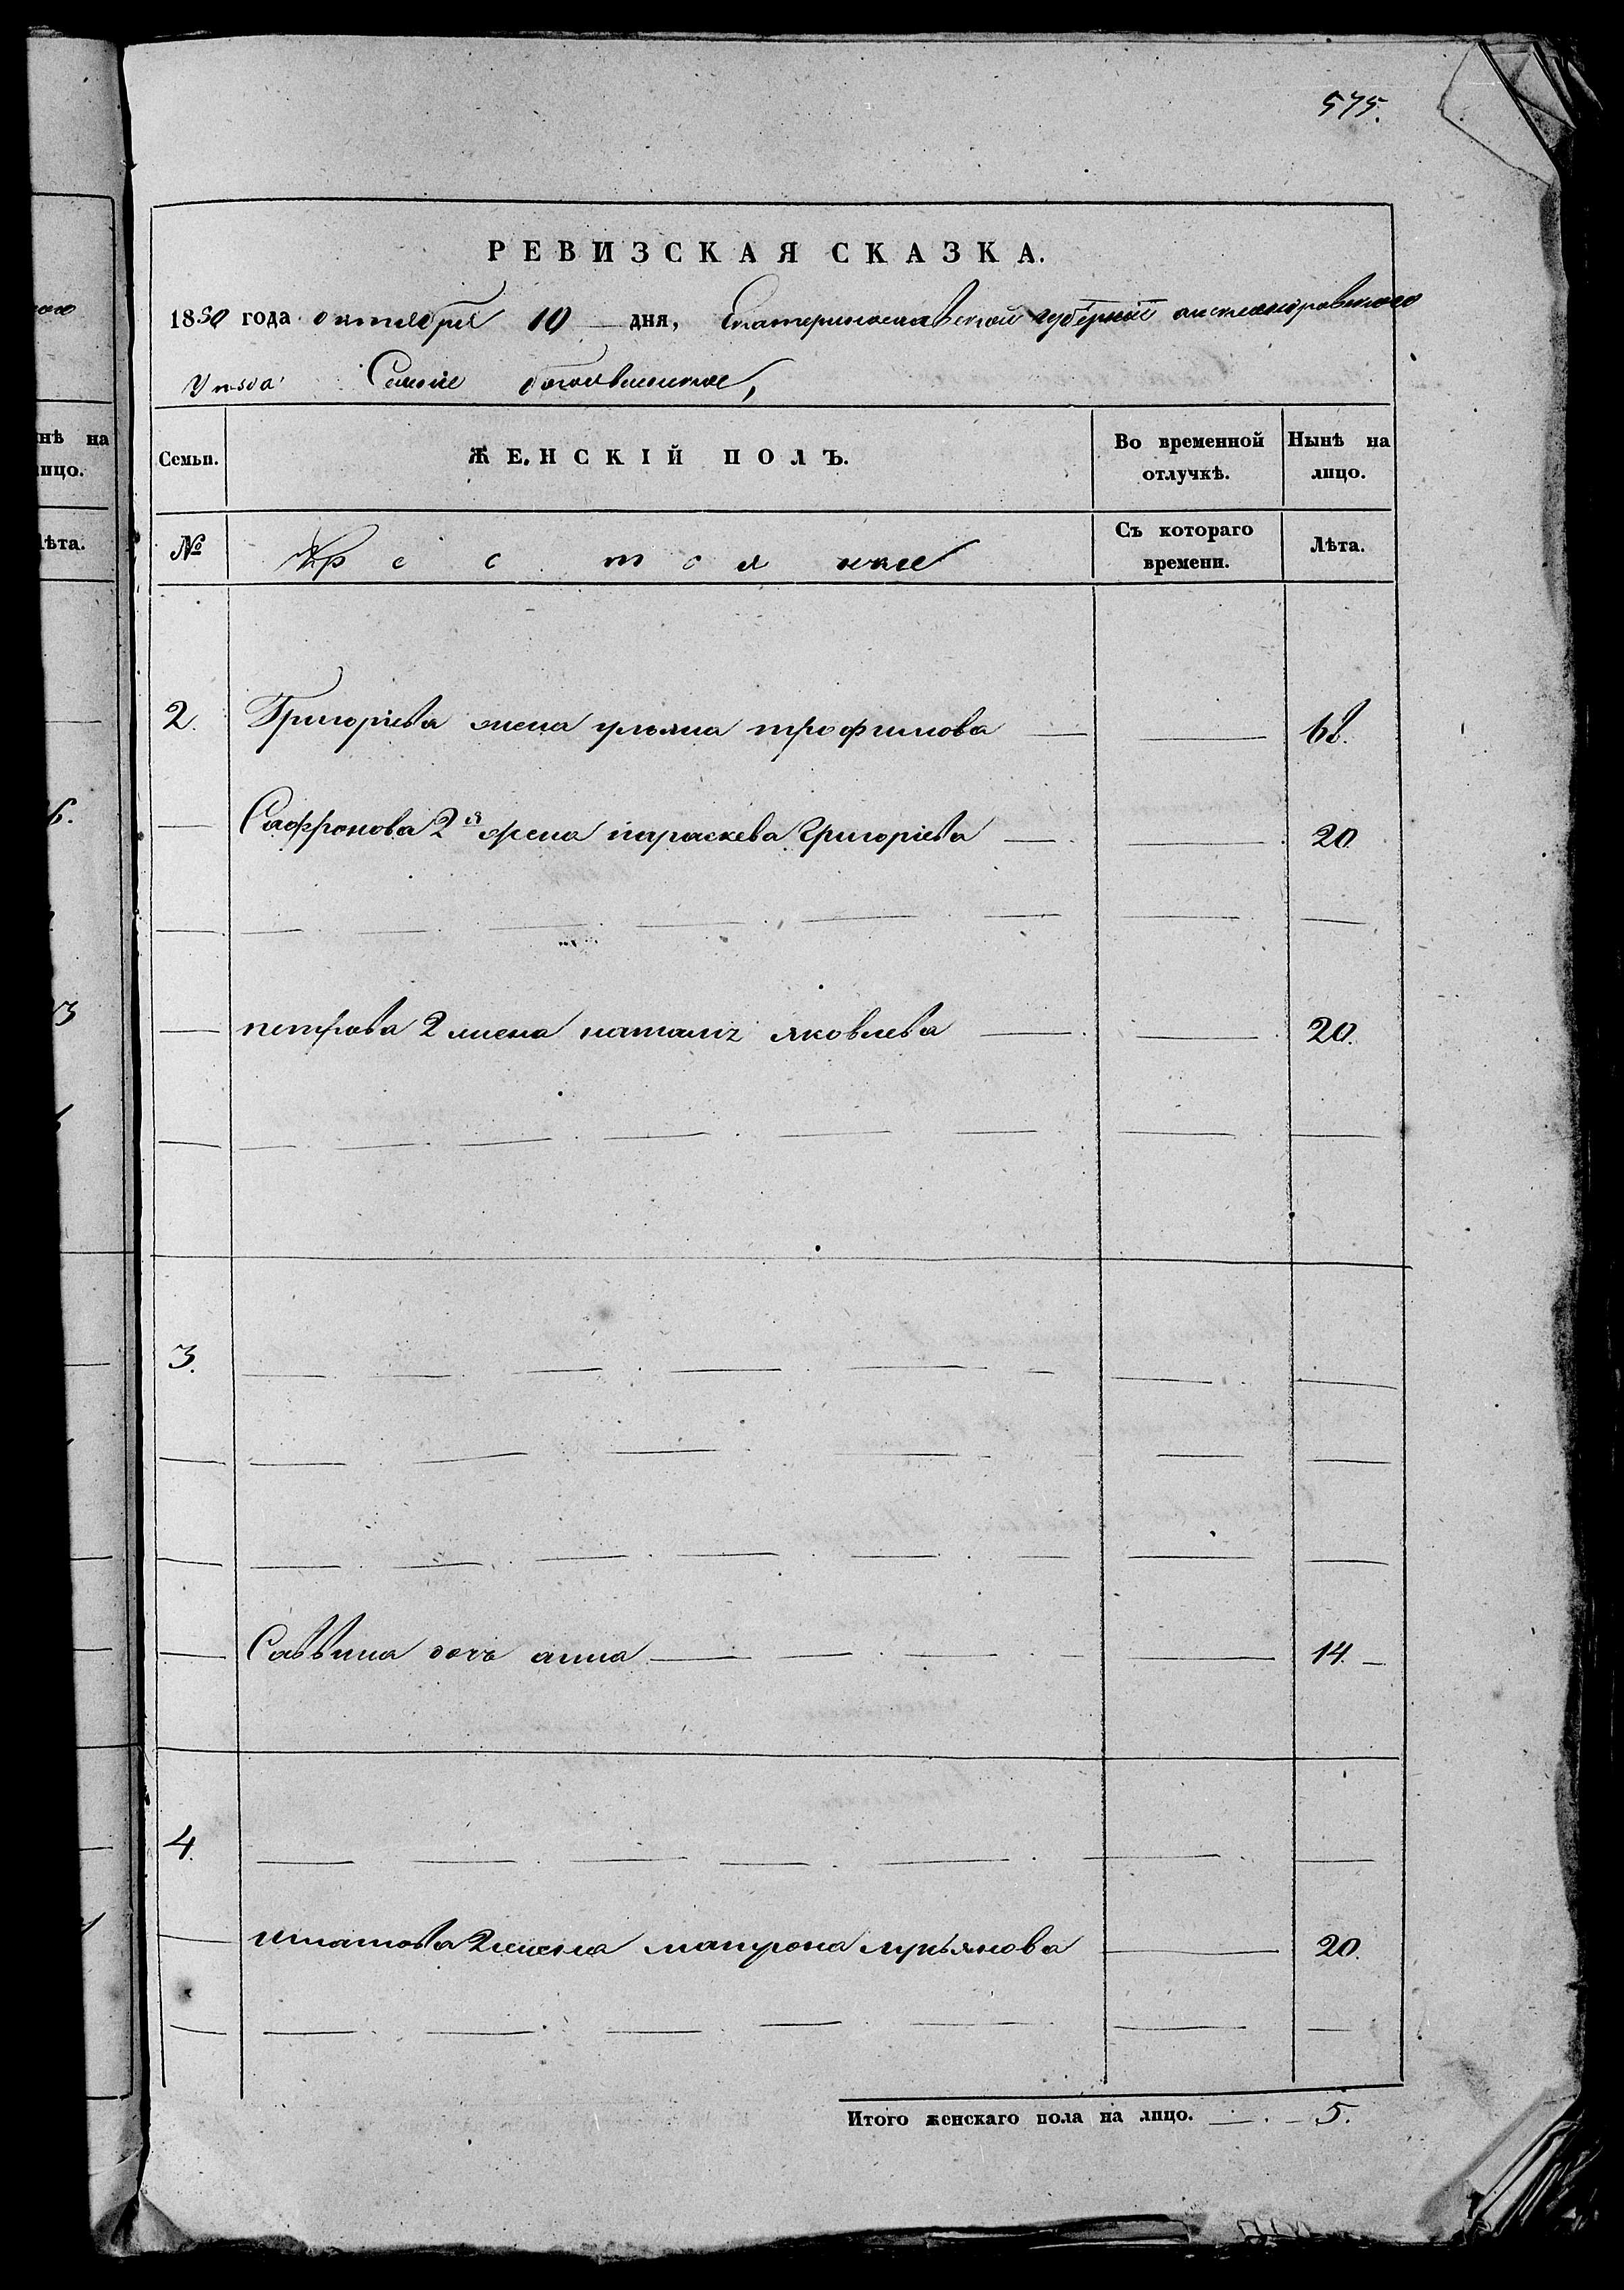 575.
РЕВИЗСКАЯ СКАЗКА.
1850 года октября 10 дня, Екатеринославской губерніи александровскаго
Уѣзда
Семьи. ЖЕНСКІЙ ПОЛЪ. Во временной отлучкѣ. Нынѣ на лицо.
№ Крестьянке Съ котораго времени. Лѣта.
2. Григорьева жена ульяна трофимова
Сафронова 2я жена параскева Григорьева 20.
петрова 2 жена наталья яковлева 20.
3.
Саввина дочь анна 14.
4.
игнатова 2 жена лукьянова 20.
Итого женскаго пола на лицо. 5.
нѣ на
ицо.
ѣта.